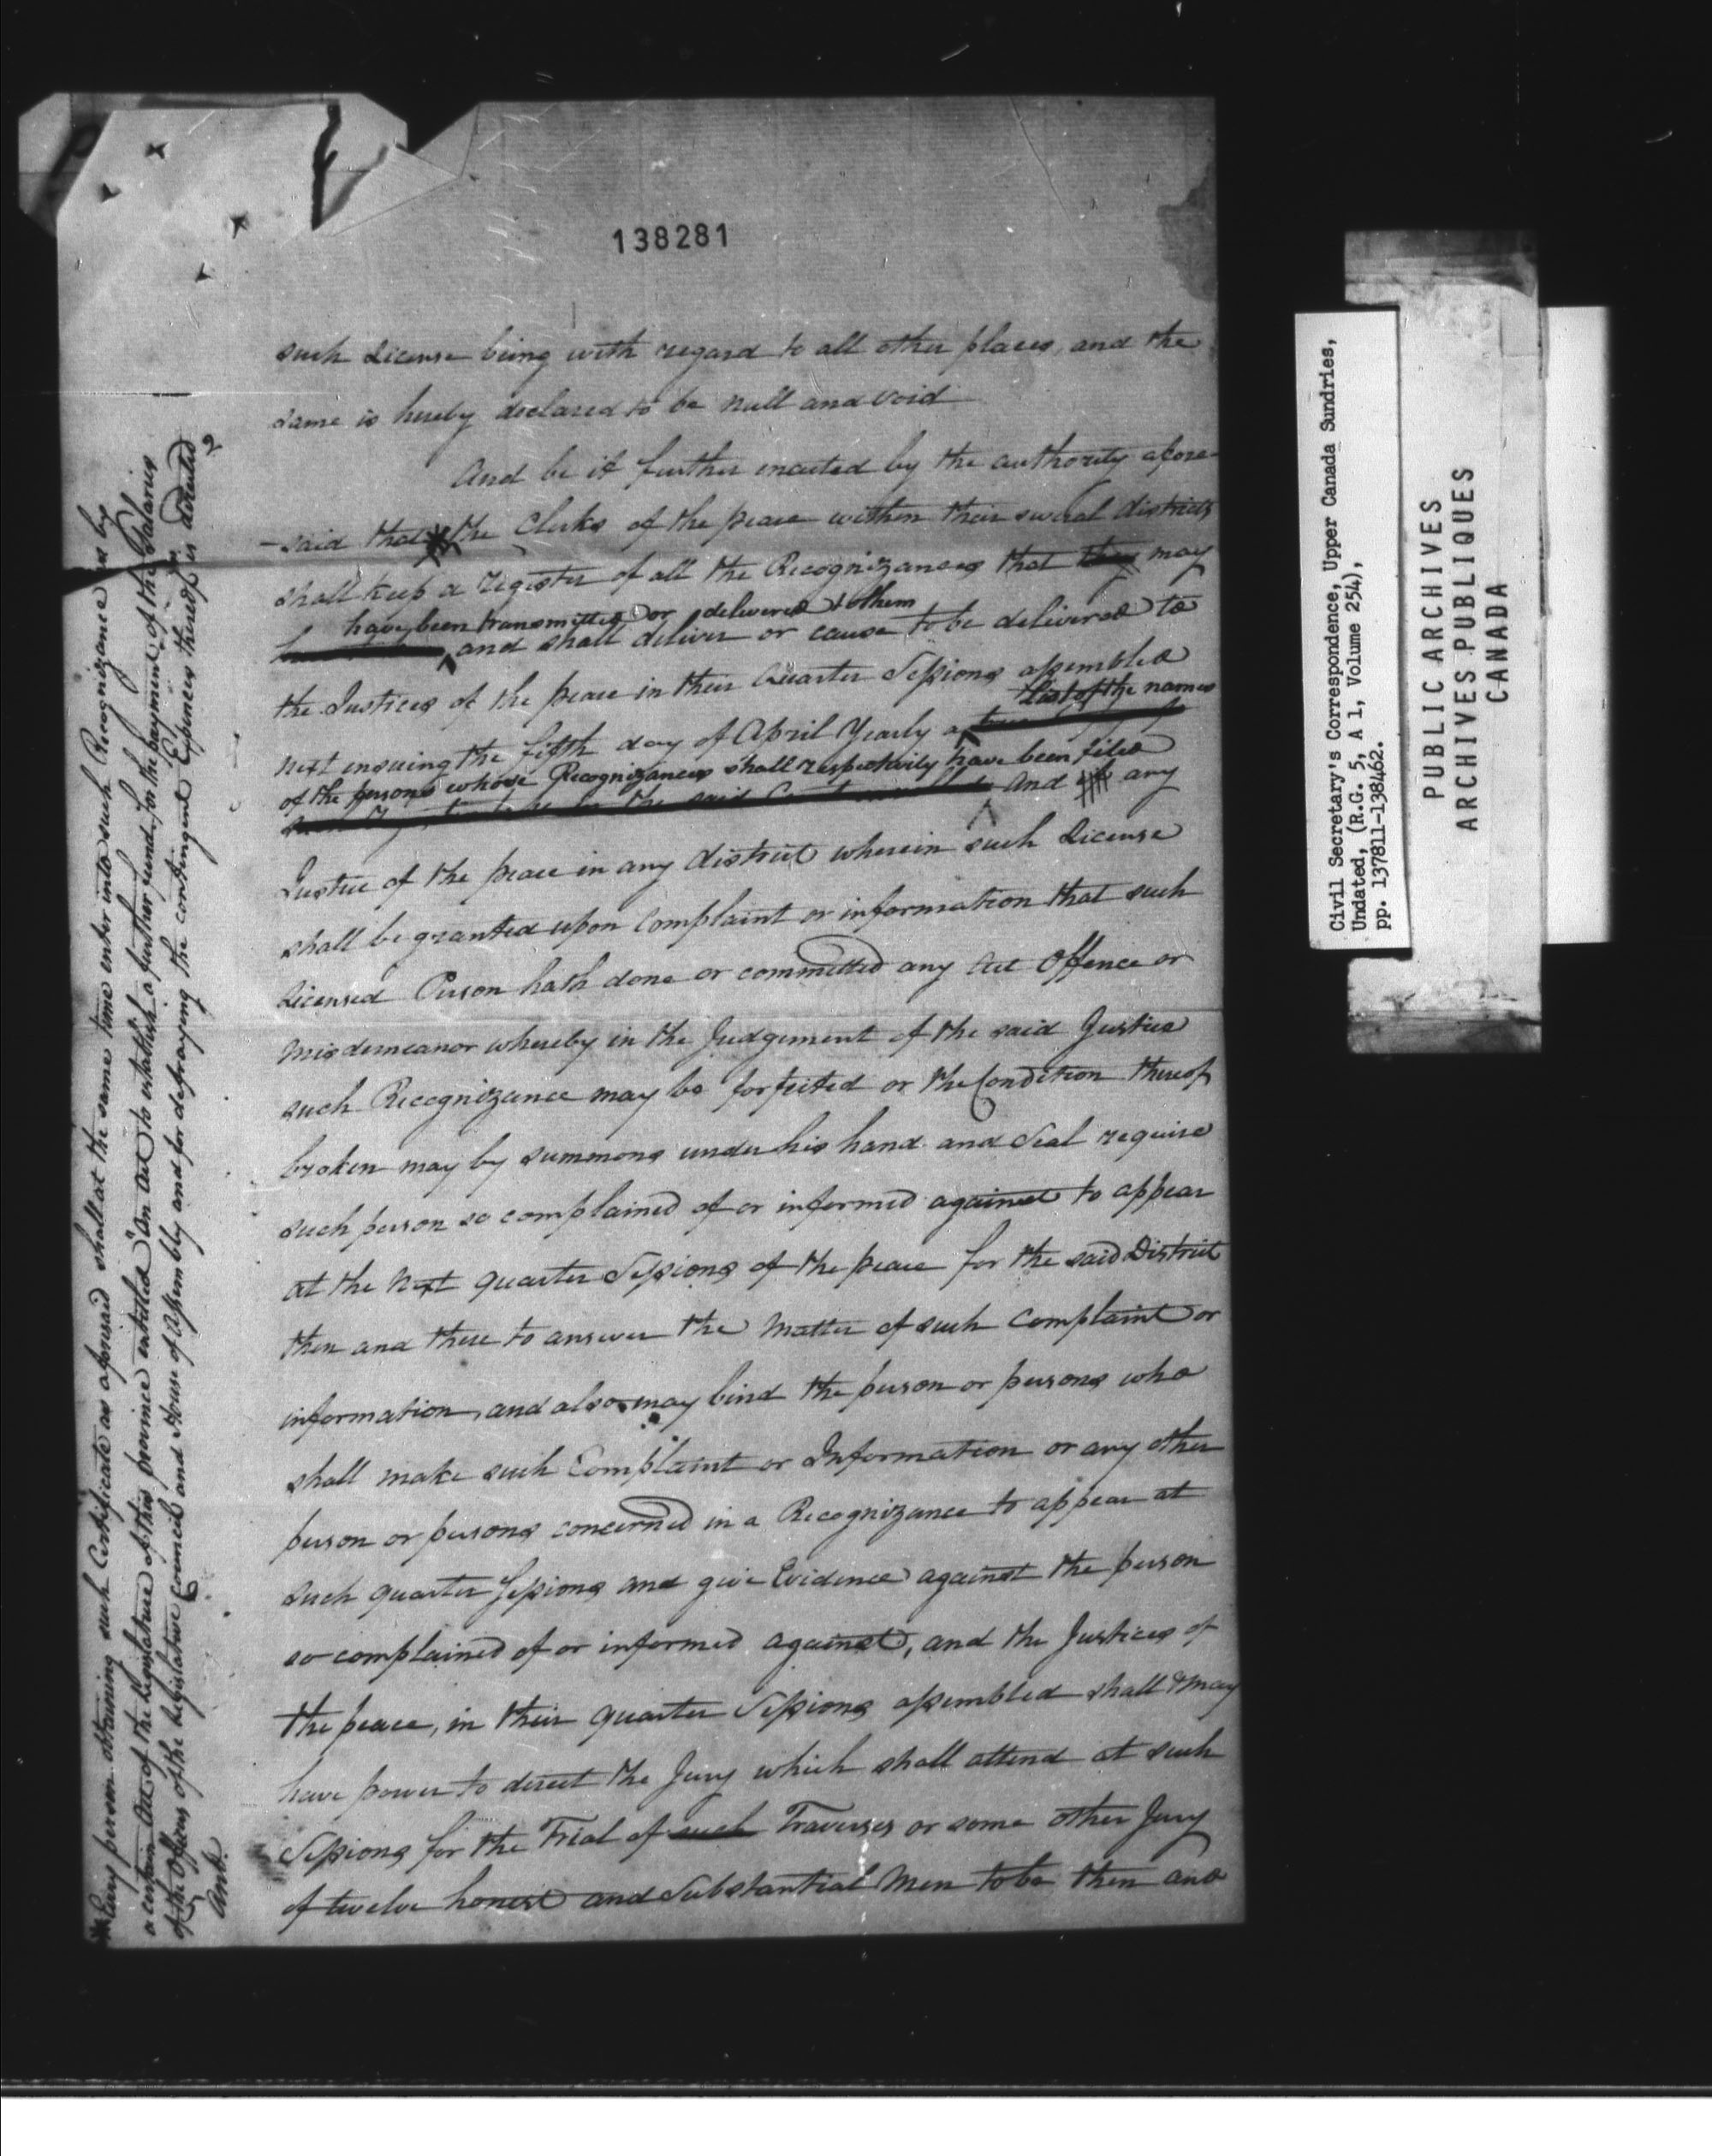 138281
such License being with regard to all other places, and the
same is hereby declared to be null and void
And be it further enacted by the authority afore-
-said that * the Clerks of the peace within their several districts
shall keep a register of all the Recognizances that they may
have been transmitted or delivered to them
and shall deliver or cause to be delivered to
the Justices of the peace in their Quarter Sessions assembled
List of the names
next ensuing the fifth day of April Yearly a
of the persons whose Recognizances shall respectively have been filed
And any
Justice of the peace in any district wherein such License
shall be granted upon Complaint or information that such
Licensed Person hath done or committed any Act Offence or
Misdemeanor whereby in the Judgement of the said Justice
such Recognizance may be forfeited or the Condition thereof
broken may by summons under his hand and Seal require
such person so complained of or informed against to appear
at the Next quarter Sessions of the peace for the said District
then and there to answer the Matter of such Complaint or
information, and also may bind the person or persons who
shall make such Complaint or Information or any other
person or persons concerned in a Recognizance to appear at
such quarter Sessions and give Evidence against the person
so complained of or informed against, and the Justices of
the peace, in their quarter Sessions assembled shall & may
have power to direct the Jury which shall attend at such
Sessions for the Trial of such Traverses or some other Jury
of twelve honest and Substantial Men to be then and
* Every person obtaining such Certificate as aforesaid shall at the same time enter into such Recognizance as by
a certain Act of the Legislature of this province entitled "An Act to establish a further fund for the payment of the Salaries
of the Officers of the legislative Council and House of Assembly and for defraying the contingent Expences thereof" is directed
And.
Civil Secretary's Correspondence, Upper Canada Sundries,
Undated, (R.G. 5, A 1, Volume 254),
pp. 137811-138462.
PUBLIC ARCHIVES
ARCHIVES PUBLIQUES
CANADA